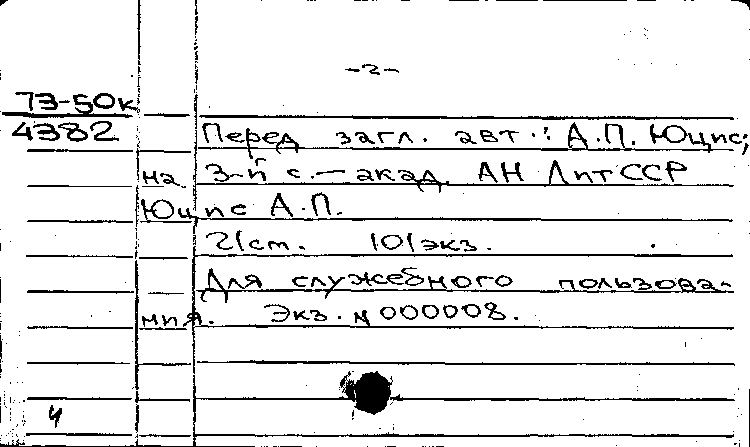 -2-
73-50к
4382
Перед загл. авт.: А.П. Юцис;
на 3-й с. - акад. АН ЛитССР
Юцис А.П.
21 см. 101 экз.
Для служебного пользова-
ния. Экз. № 000008.
4